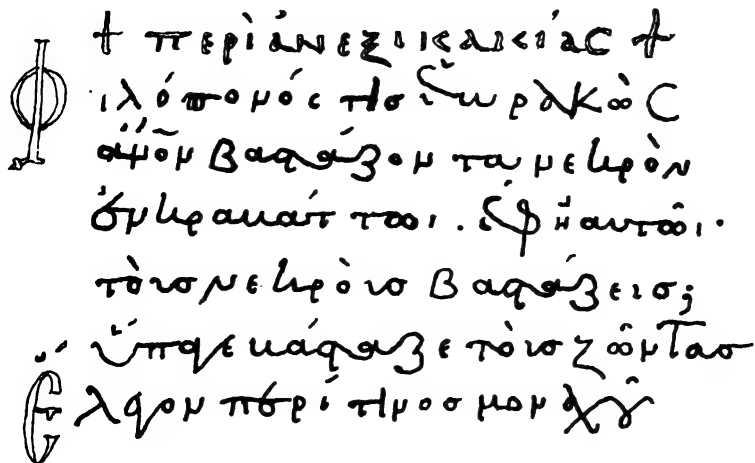 + περὶ ἀνεξικακίας +
Φιλόπονός τις ἑωρακὼς
ἄνον βαστάζοντα νεκρὸν
ἐν κραβάττωι. ἔφη αὐτῶι·
τοὺς νεκροὺς βαστάζεις;
ὕπαγε βάσταζε τοὺς ζῶντας
Ἔλεγον περί τινος μοναχοῦ